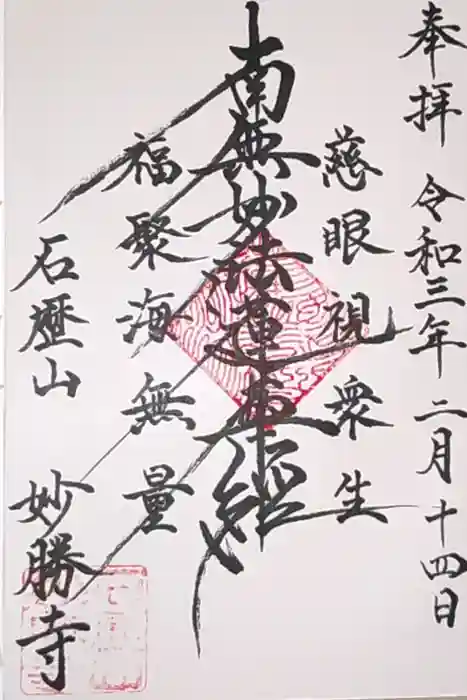 奉拝 令和三年二月十四日
慈眼視衆生
南無妙法蓮華経
福聚海無量
石歴山 妙勝寺